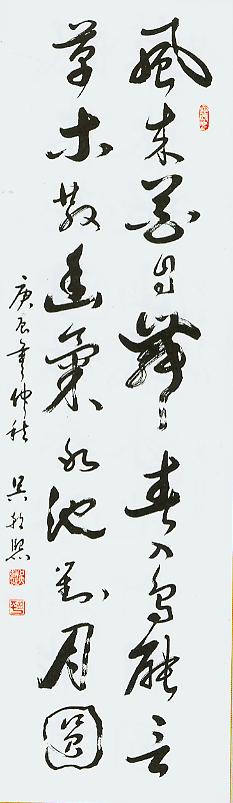 風來花自舞春入鳥能言
草木散幽氣水池對月圓
庚辰年仲秋 吳